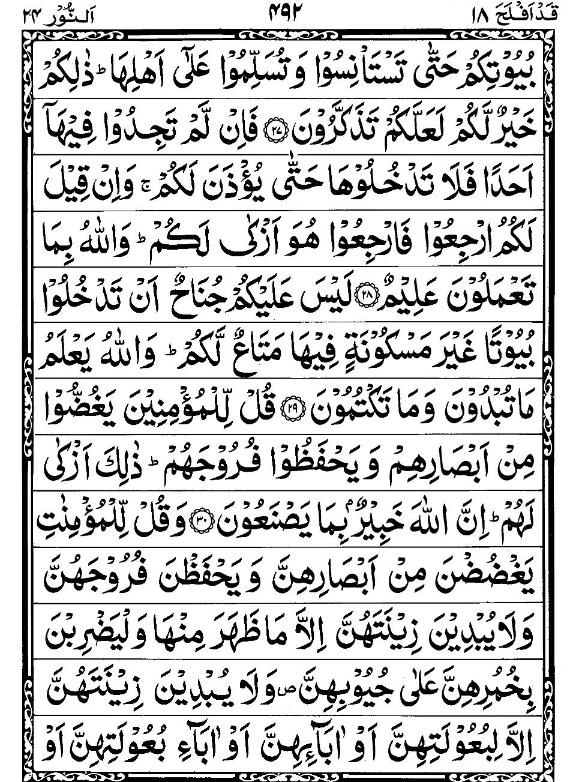 قَدۡ اَفۡلَحَ ١٨ ۴۹۲ اَلنُّوۡر ٢۴
بُيُوۡتِكُمۡ حَتّٰى تَسۡتَاۡنِسُوۡا وَ تُسَلِّمُوۡا عَلٰٓى اَهۡلِهَا ؕ ذٰلِكُمۡ
خَيۡرٌ لَّكُمۡ لَعَلَّكُمۡ تَذَكَّرُوۡنَ ﴿۲۷﴾ فَاِنۡ لَّمۡ تَجِدُوۡا فِيۡهَاۤ
اَحَدًا فَلَا تَدۡخُلُوۡهَا حَتّٰى يُؤۡذَنَ لَكُمۡ ۚ وَاِنۡ قِيۡلَ
لَكُمُ ارۡجِعُوۡا فَارۡجِعُوۡا هُوَ اَزۡكٰى لَكُمۡ ؕ وَاللّٰهُ بِمَا
تَعۡمَلُوۡنَ عَلِيۡمٌ ﴿۲۸﴾ لَيۡسَ عَلَيۡكُمۡ جُنَاحٌ اَنۡ تَدۡخُلُوۡا
بُيُوۡتًا غَيۡرَ مَسۡكُوۡنَةٍ فِيۡهَا مَتَاعٌ لَّكُمۡ ؕ وَاللّٰهُ يَعۡلَمُ
مَا تُبۡدُوۡنَ وَمَا تَكۡتُمُوۡنَ ﴿۲۹﴾ قُلۡ لِّلۡمُؤۡمِنِيۡنَ يَغُضُّوۡا
مِنۡ اَبۡصَارِهِمۡ وَ يَحۡفَظُوۡا فُرُوۡجَهُمۡ ؕ ذٰلِكَ اَزۡكٰى
لَهُمۡ ؕ اِنَّ اللّٰهَ خَبِيۡرٌۢ بِمَا يَصۡنَعُوۡنَ ﴿۳۰﴾ وَقُلۡ لِّلۡمُؤۡمِنٰتِ
يَغۡضُضۡنَ مِنۡ اَبۡصَارِهِنَّ وَ يَحۡفَظۡنَ فُرُوۡجَهُنَّ
وَلَا يُبۡدِيۡنَ زِيۡنَتَهُنَّ اِلَّا مَا ظَهَرَ مِنۡهَا وَلۡيَضۡرِبۡنَ
بِخُمُرِهِنَّ عَلٰى جُيُوۡبِهِنَّ ۖ وَلَا يُبۡدِيۡنَ زِيۡنَتَهُنَّ
اِلَّا لِبُعُوۡلَتِهِنَّ اَوۡ اٰبَآٮِٕهِنَّ اَوۡ اٰبَآءِ بُعُوۡلَتِهِنَّ اَوۡ